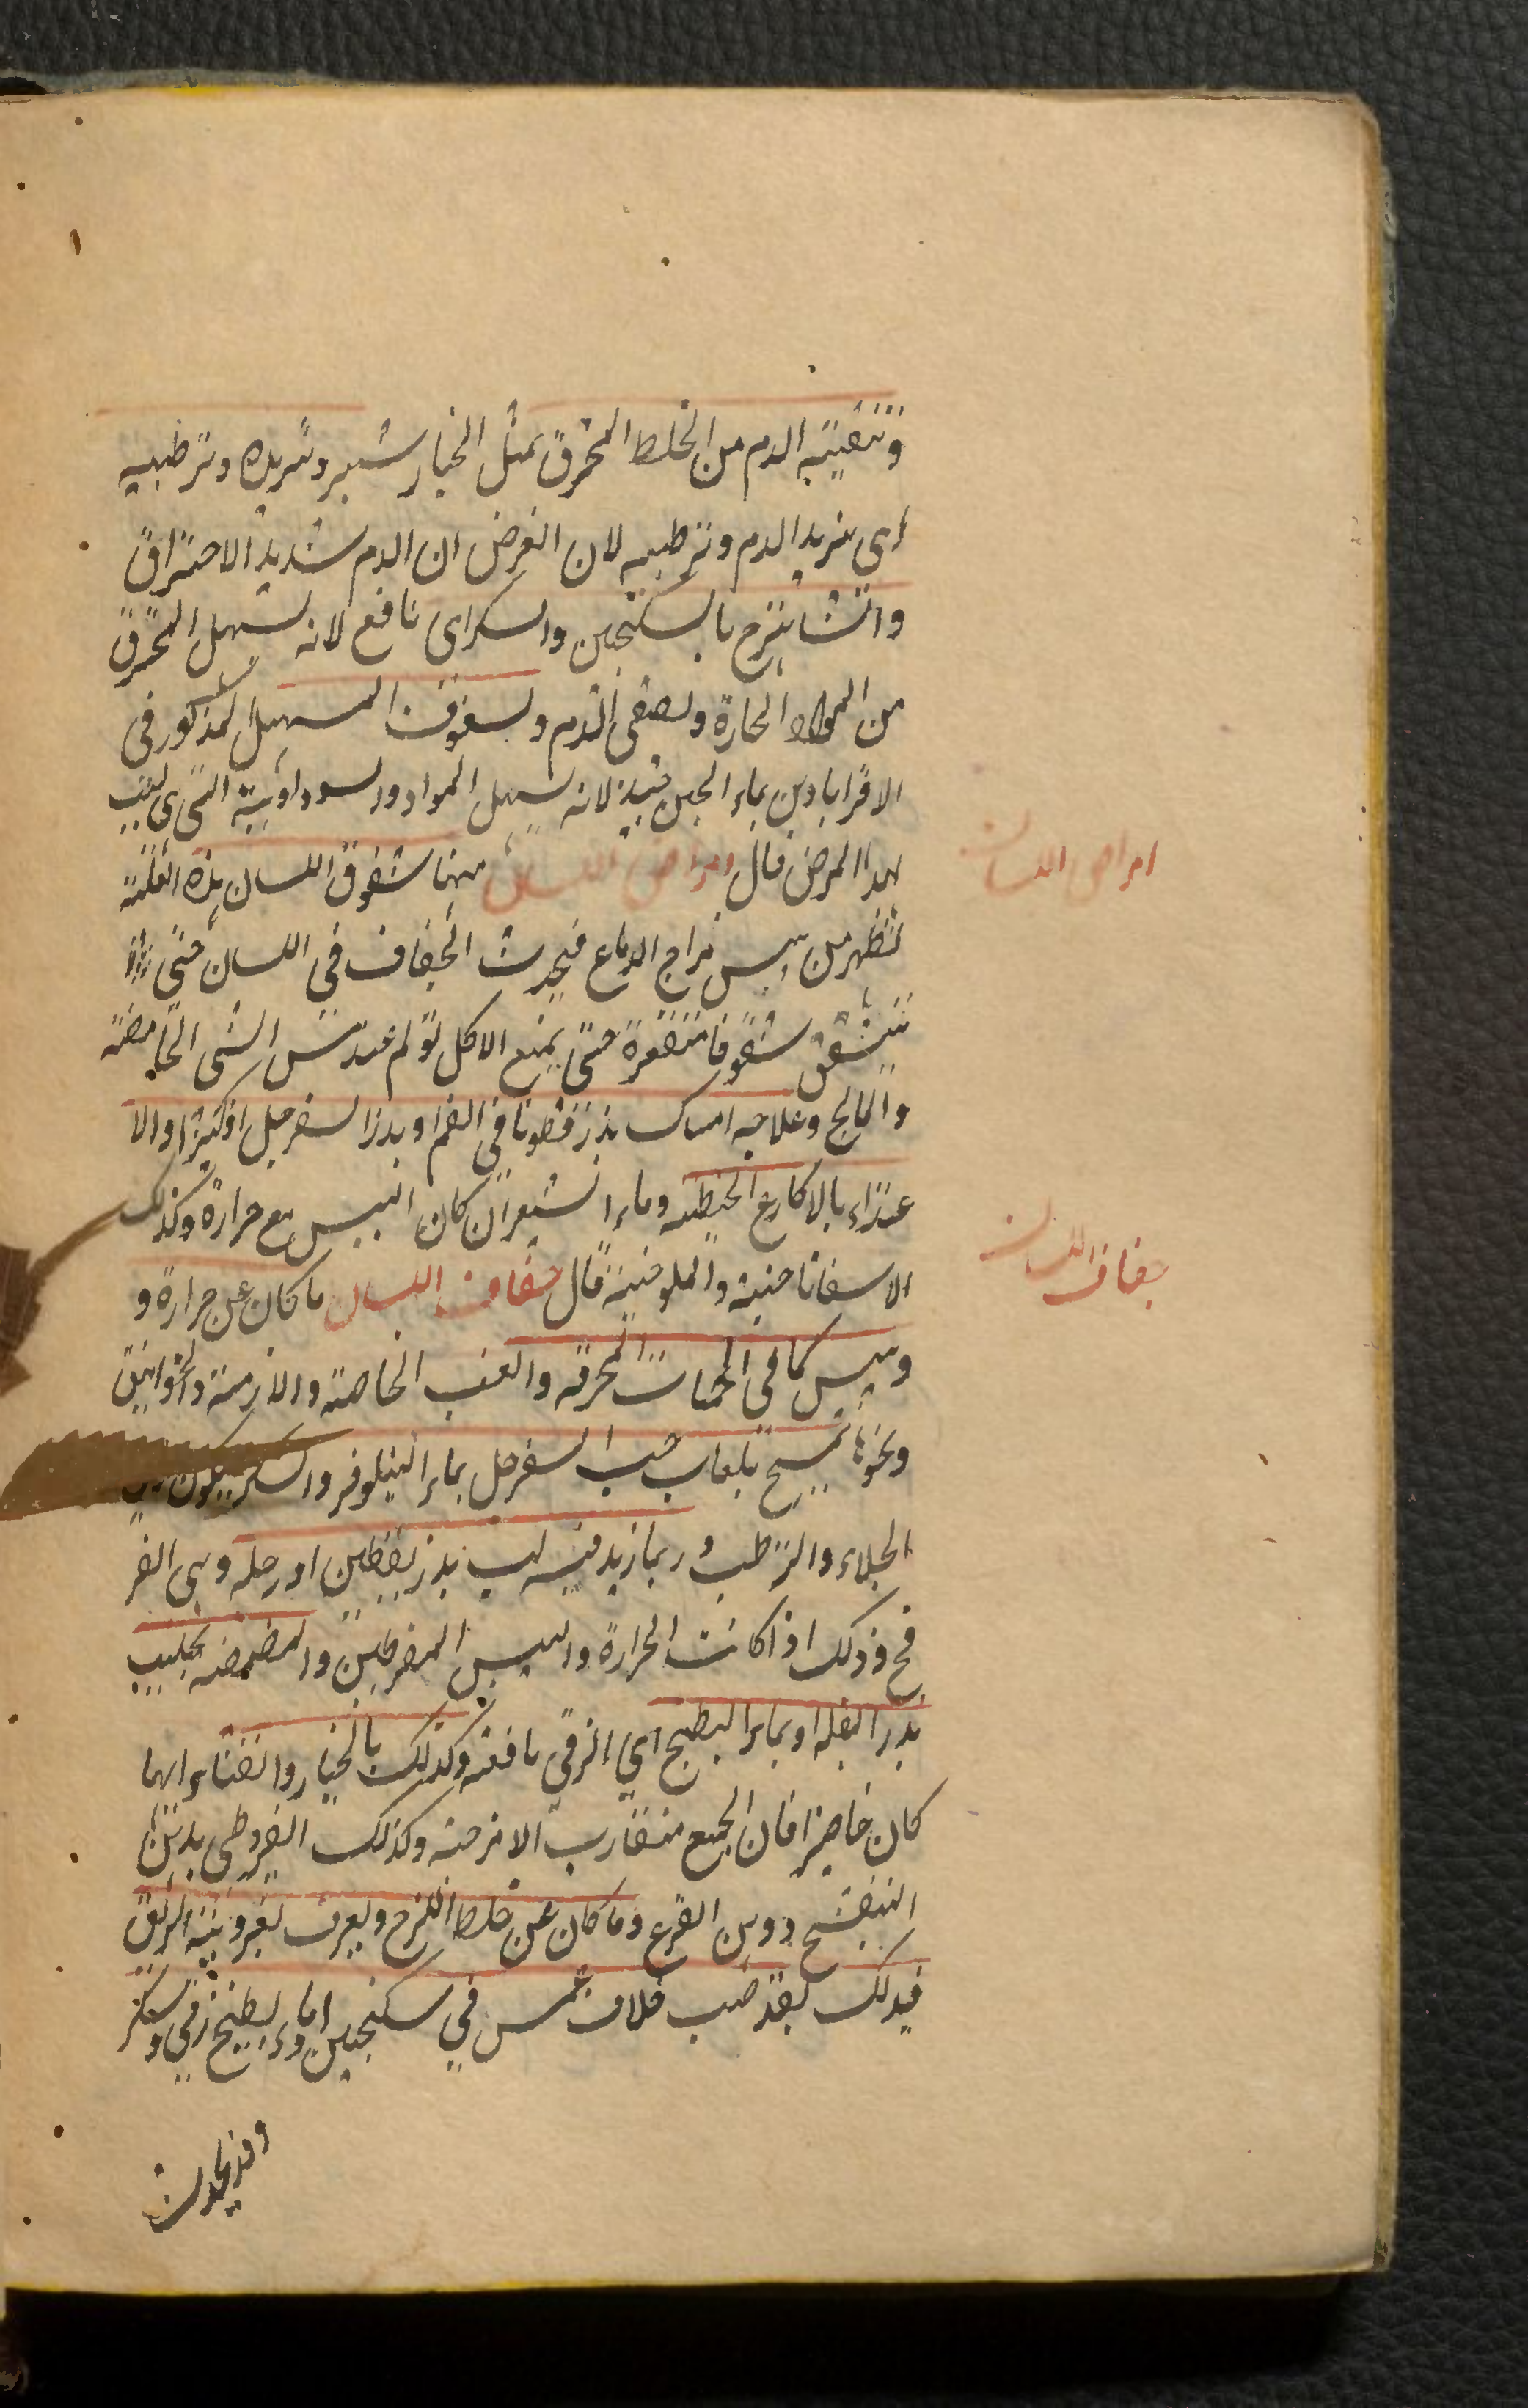 وتنقية الدم من الخلط المحترق بمثل الخيار شنبر وتبريده وترطيبه
اى تبريد الدم وترطيبه لان الغرض ان الدم شديد الاحتراق
والشاهترج بالسكنجبين والسكراى نافع لانه يسهل المحترق
من المواد الحارة ويصفى الدم وسفوف المسهل المذكور فى
الاقرابادين بماء الجبن جيد لانه يسهل المواد السوداوية التى هى سبب
لهذا المرض قال امراض اللسان منها شقوق اللسان هذه العلة
تظهر من يبس مزاج الدماغ فيحدث الجفاف فى اللسان حتى
يتشقق شقوقا متقعرة حتى يمنع الاكل تولم عند مس الشى الحامضة
والمالح وعلاجه امساك بذر قطونا فى الفم او بذر السفرجل او كثيرا والا
غتذاء بالاكارع الحنطية وماء الشعير ان كان اليبس مع حرارة وكذلك
الاسفاناخية والملوخية قال جفاف اللسان ما كان عن حرارة و
ويبس كما فى الحميات المحرقة والغب الخاصة والازمنة والخوانيق
ونحوها تمسح بلعاب حب السفرجل بماء النيلوفر والسكر ليكون
الجلاء والترطب وربما زيد فيه لب بذر يقطين او رجله وهى الفر
فخ وذلك اذا كانت الحرارة واليبس المفرطين والمضمضه بحليب
بذر البقله او بماء البطيخ اي الزقي نافعة وكذلك بالخيار والقثاء ايهما
كان حاضرا فان الجميع متقارب الامزجة وكذلك القيروطى بدهن
البنفسج ودهن القرع وما كان عن خلط لزج ويعرف بغروية الريق
فيدلك بقضيب خلاف غمس في سكنجبين او ماء بطيخ زقي وسكر
وقد يحدث
امراض اللسان
جفاف اللسان